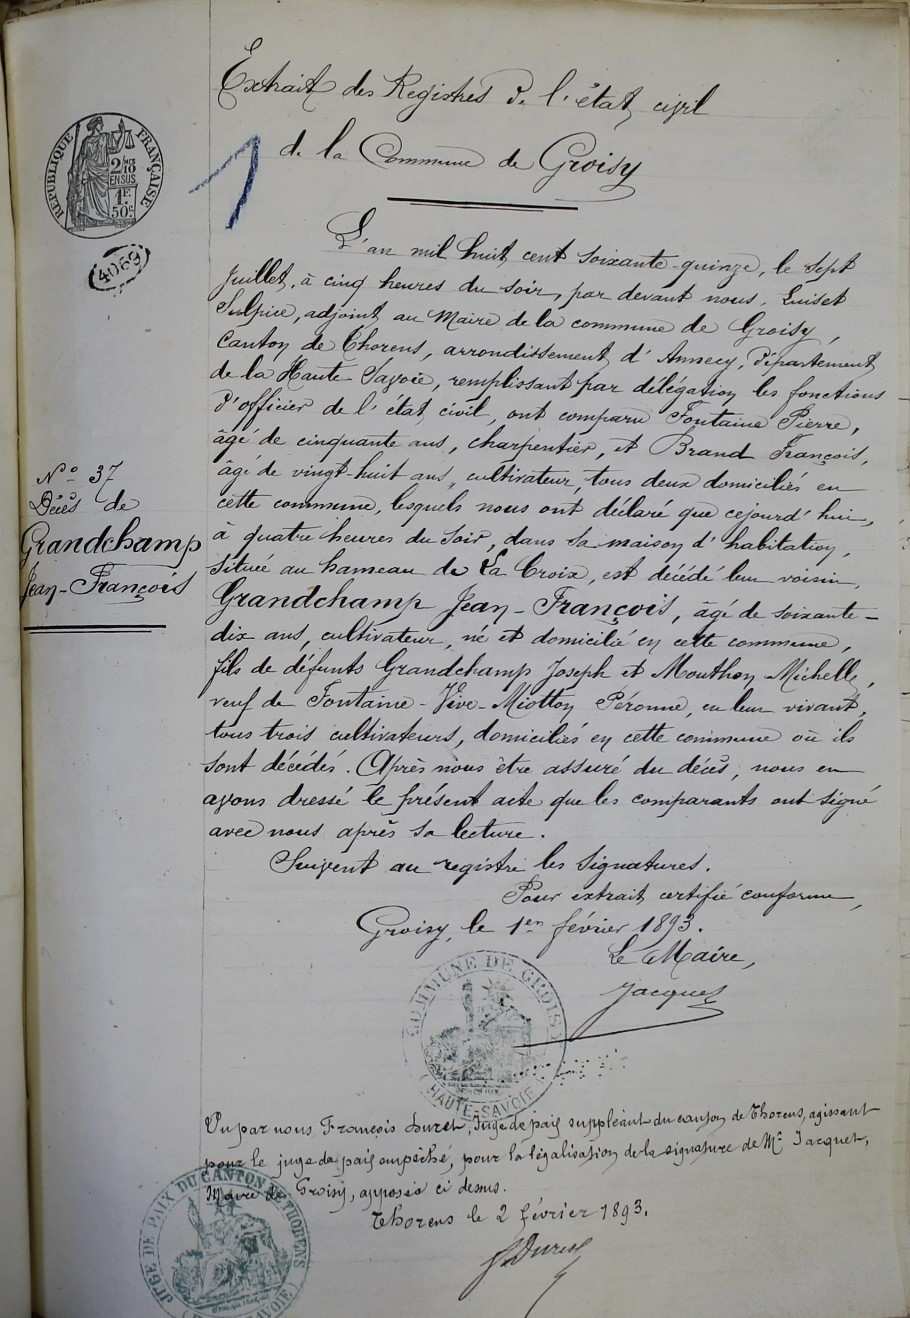 Extrait des Registres de l'état civil
de la Commune de Groisy
RÉPUBLIQUE FRANÇAISE
2/10
EN SUS
1F
50c
4069
L'an mil huit cent soixante-quinze, le sept
Juillet, à cinq heures du soir, par devant nous, Luiset
Sulpice, adjoint au Maire de la commune de Groisy,
Canton de Thorens, arrondissement d'Annecy, département
de la Haute Savoie, remplissant par délégation les fonctions
d'officier de l'état civil, ont comparu Fontaine Pierre,
âgé de cinquante ans, charpentier, et Brand François,
âgé de vingt-huit ans, cultivateur, tous deux domiciliés en
cette commune, lesquels nous ont déclaré que cejourd'hui,
à quatre heures du soir, dans sa maison d'habitation,
située au hameau de La Croix, est décédé leur voisin,
Grandchamp Jean-François, âgé de soixante-
dix ans, cultivateur, né et domicilié en cette commune,
fils de défunts Grandchamp Joseph et Mouthon Michelle,
veuf de Fontaine-Vive-Miotton Péronne, en leur vivant,
tous trois cultivateurs, domiciliés en cette commune où ils
sont décédés. Après nous être assuré du décès, nous en
avons dressé le présent acte que les comparants ont signé
avec nous après sa lecture.
Suivent au registre les signatures.
Pour extrait certifié conforme,
Groisy, le 1er février 1893.
Le Maire,
Jacquet
N° 37
Décès de
Grandchamp
Jean-François
COMMUNE DE GROISY
(HAUTE-SAVOIE)
Vu par nous François Duret, Juge de paix suppléant du canton de Thorens, agissant
pour le juge de paix empêché, pour la légalisation de la signature de Mr Jacquet,
Maire de Groisy, apposée ci dessus.
Thorens le 2 février 1893.
F Duret
JUGE DE PAIX DU CANTON DE THORENS
(HTE SAVOIE)